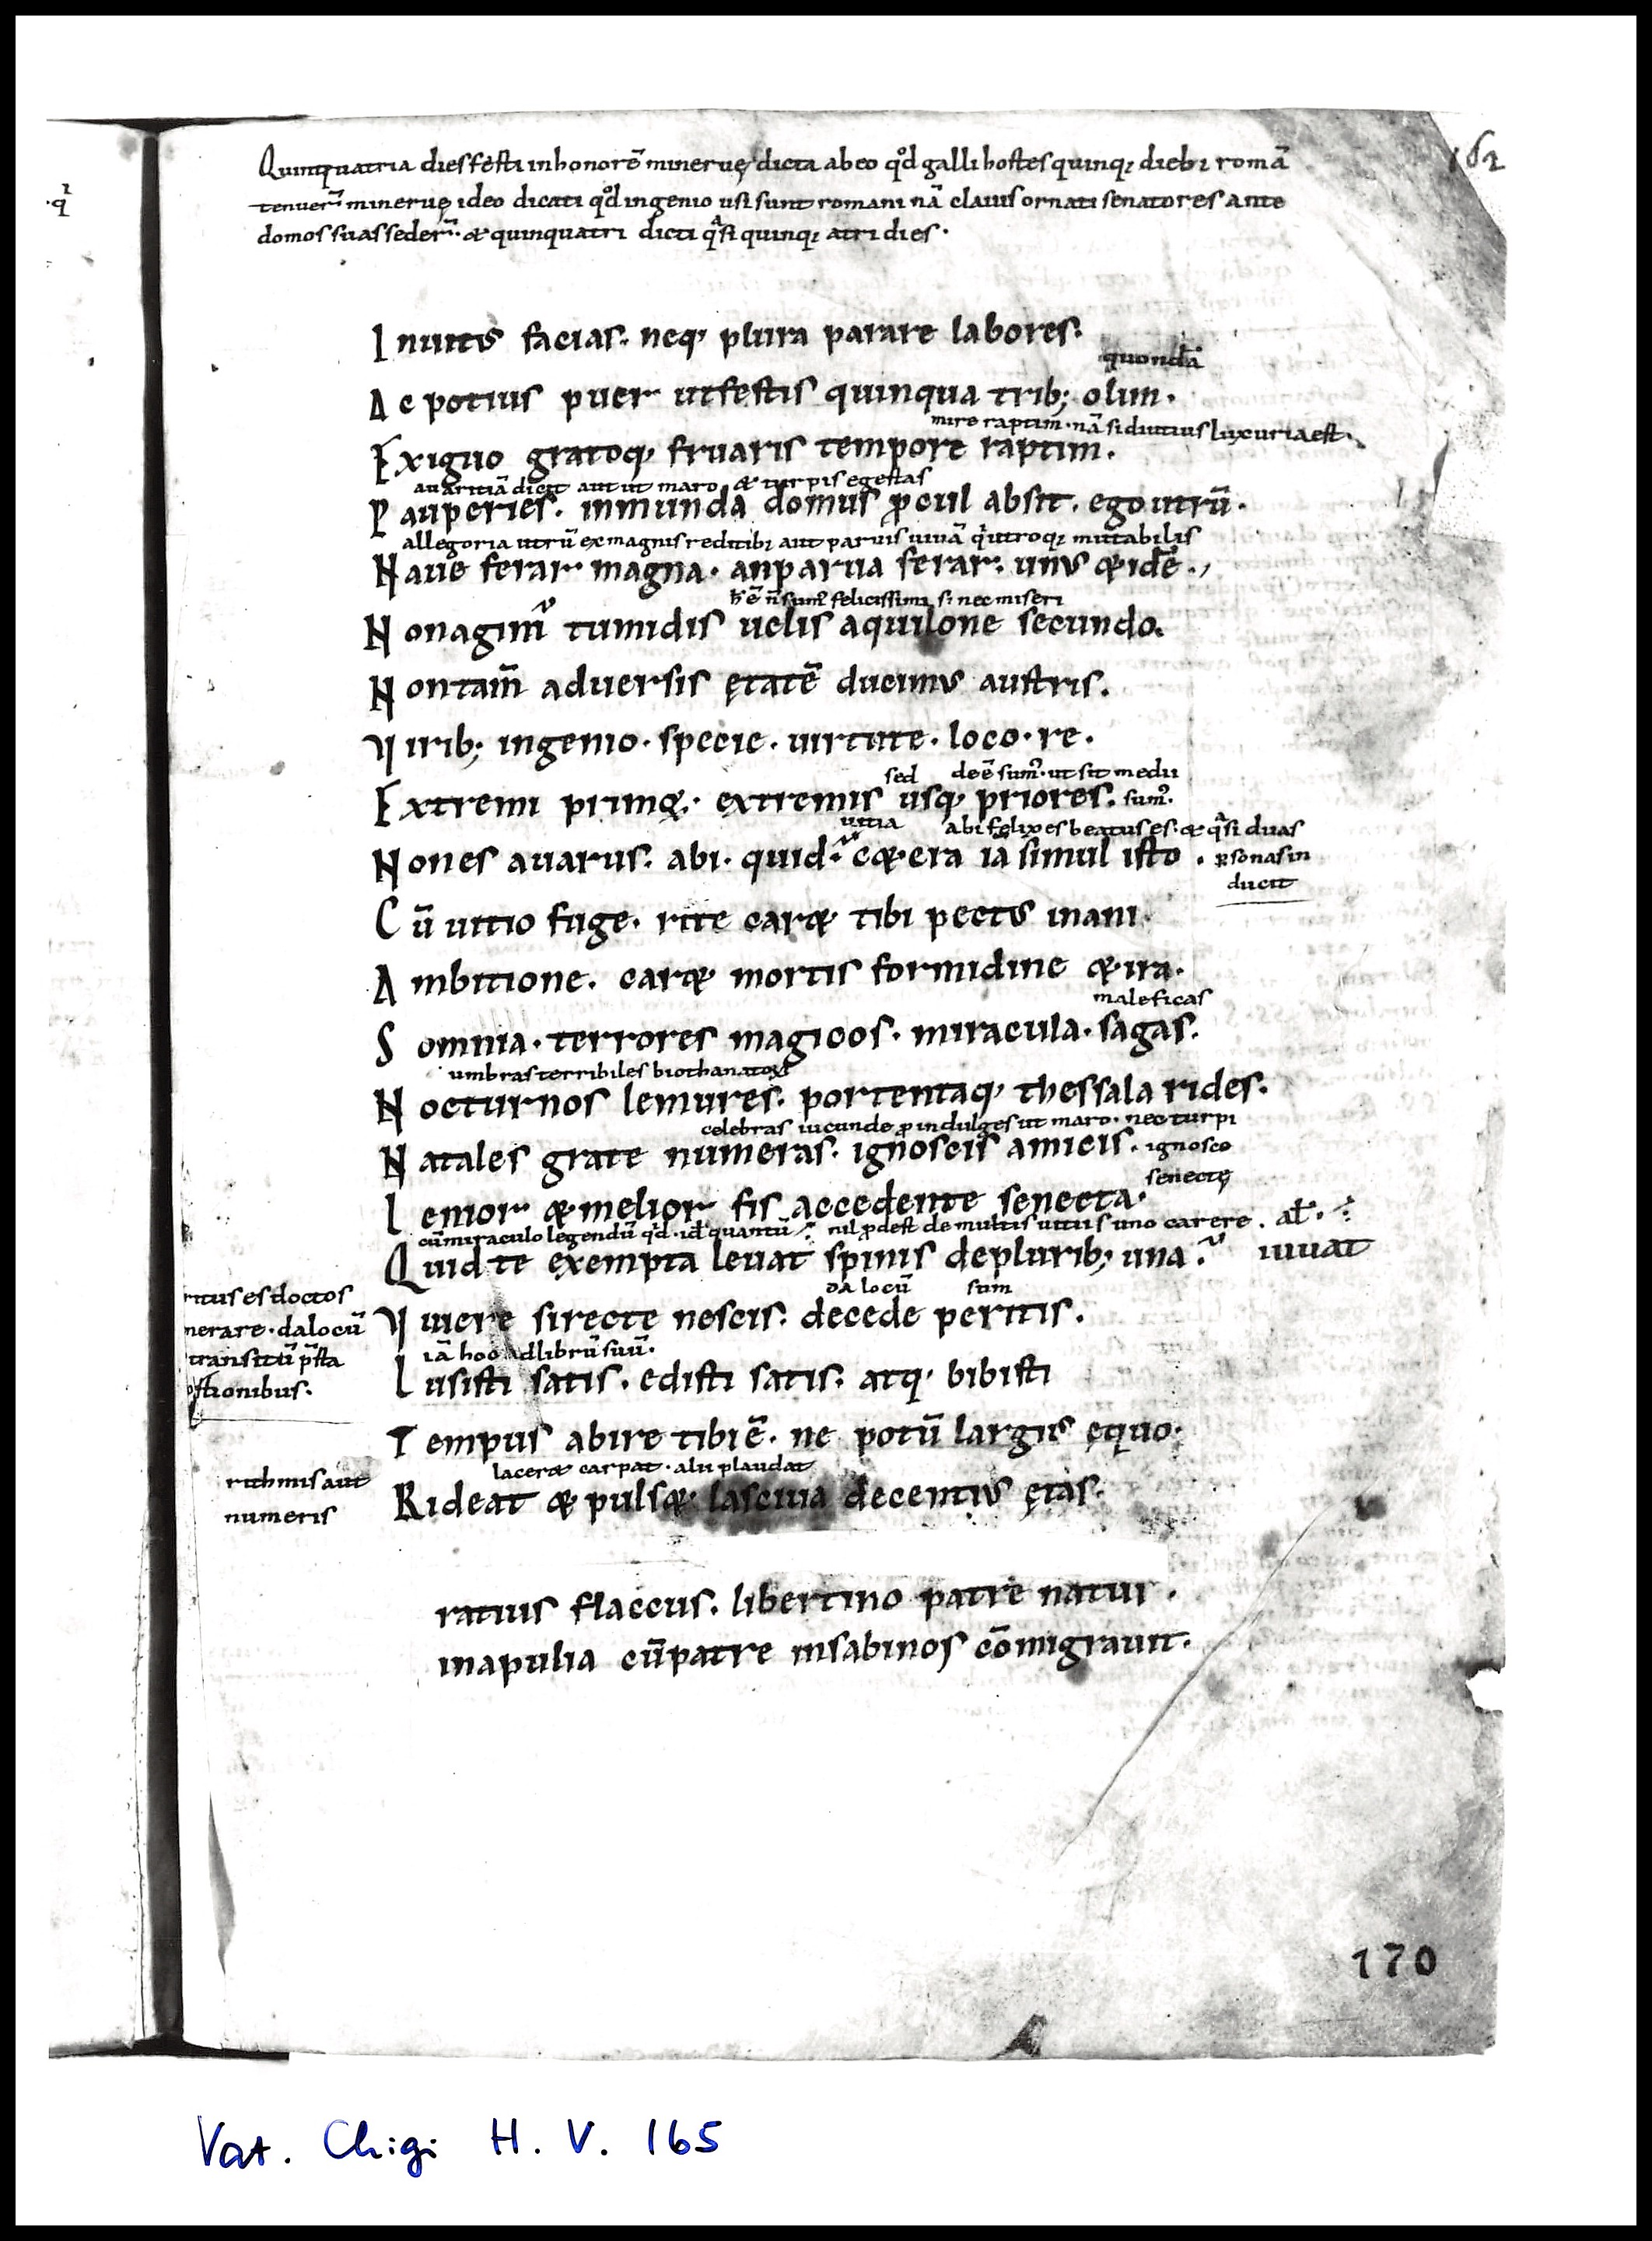 162
Quinquatria dies festi in honorē mineruę dicta ab eo qd galli hostes quinq; dieb; romā
tenuer̄ mineruę ideo dicati qd ingenio usi sunt romani nā clauis ornati senatores ante
domos suas seder̄. & quinquatri dicti qasi quinq; atri dies.
Inuitus facias. neq; plura parare labores.
quondā
Ac potius puer ut festis quinqua trib; olim.
mire raptim. nā si diutius luxuria est.
Exiguo gratoq; fruaris tempore raptim.
auaritiā dicit aut ut maro & turpis egestas
Pauperies. inmunda domus procul absit. ego utrū.
allegoria utrū ex magnis reditib; aut paruis uiuā qi utroq; mutabilis
Naue ferar magna. an parua ferar. unus & idē.
h̄ ē n̄ sum; felicissimi s; nec miseri
Non agimur tumidis uelis aquilone secundo.
Non tam̄ aduersis ętatē ducimus austris.
Virib; ingenio. specie. uirtute. loco. re.
sed deē sum;. ut sit medii
Extremi primo&. extremis usq; priores. sum;.
uitia abi felix es beatus es. & qasi duas
Non es auarus. abi. quid. c&era iā simul isto. psonas in
ducit
Cū uitio fuge. rite car& tibi pectus inani
Ambitione. car& mortis formidine & ira.
maleficas
Somnia. terrores magicos. miracula. sagas.
umbras terribiles biothanatox
Nocturnos lemures. portentaq; thessala rides.
celebras iucunde p indulges ut maro. nec turpi
Natales grate numeras. ignoscis amicis. ignosco
senectę
Lenior & melior fis accedente senecta.
cū miraculo legendū qd. id quantū nil pdest de multis uitiis uno carere. al.
Quid te exempta leuat spinis de plurib; una iuuat
da locū sum
ritus es doctos
Viuere si recte nescis. decede peritis.
nerare. da locū
iā hoc ad librū suū.
transitū p̄sta
Lusisti satis. edisti satis. atq; bibisti
stionibus.
Tempus abire tibi ē. ne potū largius ęquo.
lacer& carpat. alii plaudat
rithmis aut
Rideat & puls& lasciua decentius ętas.
numeris
ratius flaccus. libertino patre natur.
in apulia cū patre in sabinos cōmigrauit.
170
Vat. Chigi H. V. 165